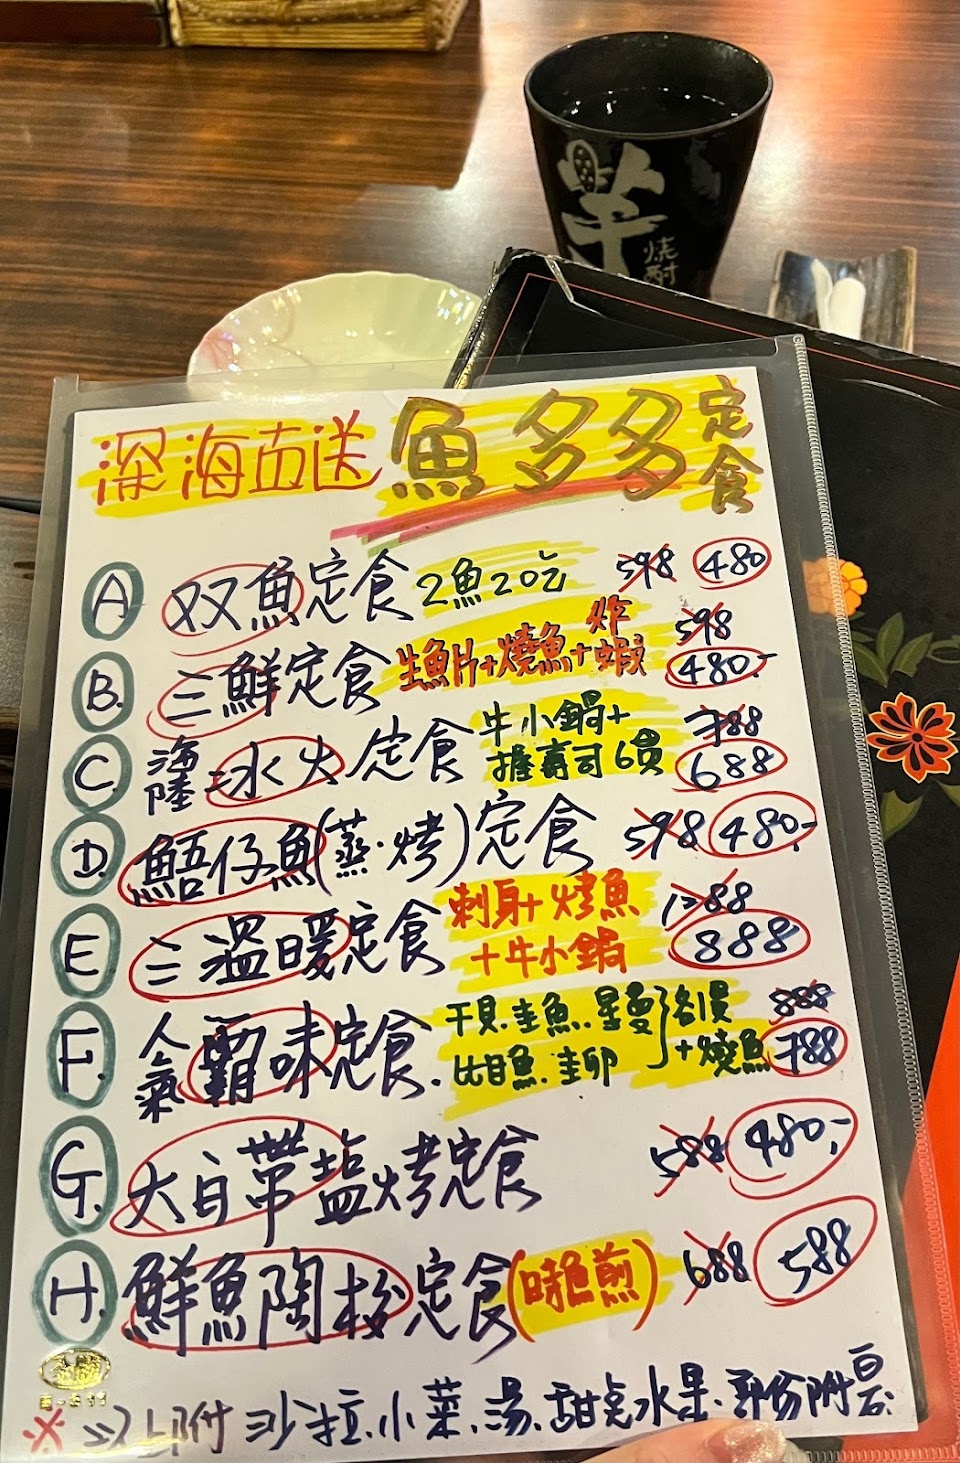 芋
焼酎
深海直送 魚多多定食
A 双魚定食 2魚2吃 598 480
B. 三鮮定食 生魚片+燒魚+炸蝦 598 480.-
C. 海陸冰火定食 牛小鍋+握壽司6貫 788 688
D. 鯃仔魚(蒸.烤)定食 598 480.-
E 三溫暖定食 刺身+烤魚+牛小鍋 1288 888
F. 人氣霸味定食. 干貝.鮭魚.星鰻 比目魚.鮭卵 各1貫+燒魚 888 788
G. 大白帶塩烤定食 588 480.-
H. 鮮魚陶板定食(時魚煎) 688 588
※ 以上附沙拉.小菜.湯.甜點水果.部份附